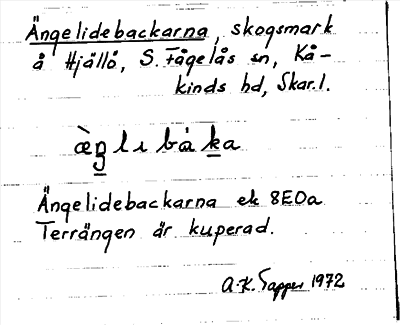 Ängelidebackarna, skogsmark
å Hjällö, S. Fågelås sn, Kå-
kinds hd, Skar.l.
æ̀ŋlıbàka
Ängelidebackarna ek 8E0a
Terrängen är kuperad.
A.K. Tapper 1972